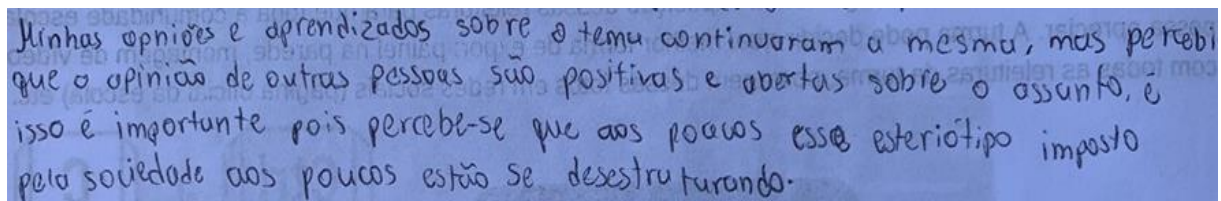 Minhas opniões e aprendizados sobre o tema continuaram a mesma, mas percebi
que o opinião de outras pessoas são positivas e abertas sobre o assunto, e
isso é importante pois percebe-se que aos poucos esse esteriótipo imposto
pela sociedade aos poucos estão se desestruturando.